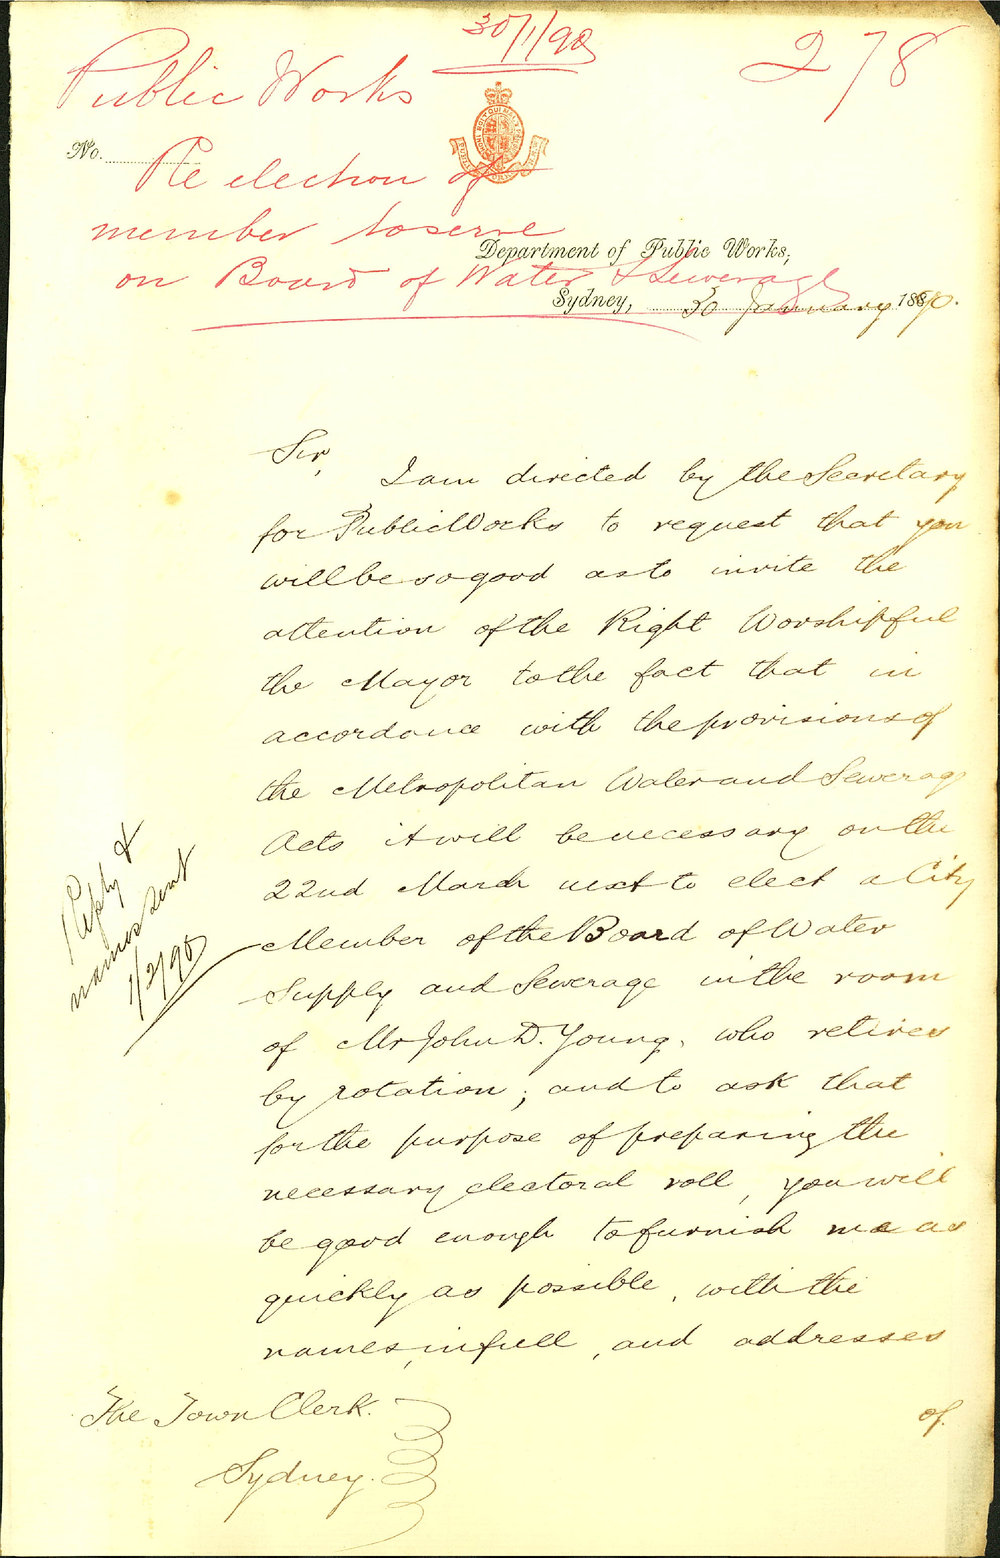 30/1/90
278
Public Works
No.
Re election of
member to serve
Department of Public Works,
on Board of Water & Sewerage
Sydney, 30 January 1890.
Sir,
I am directed by the Secretary
for Public Works to request that you
will be so good as to invite the
attention of the Right Worshipful
the Mayor to the fact that in
accordance with the provisions of
the Metropolitan Water and Sewerage
Acts it will be necessary on the
22nd March next to elect a City
Member of the Board of Water
Supply and Sewerage in the room
of Mr John D. Young, who retires
by rotation; and to ask that
for the purpose of preparing the
necessary electoral roll, you will
be good enough to furnish me as
quickly as possible, with the
names, in full, and addresses
of.
The Town Clerk.
Sydney.
Reply &
names sent
1/2/90